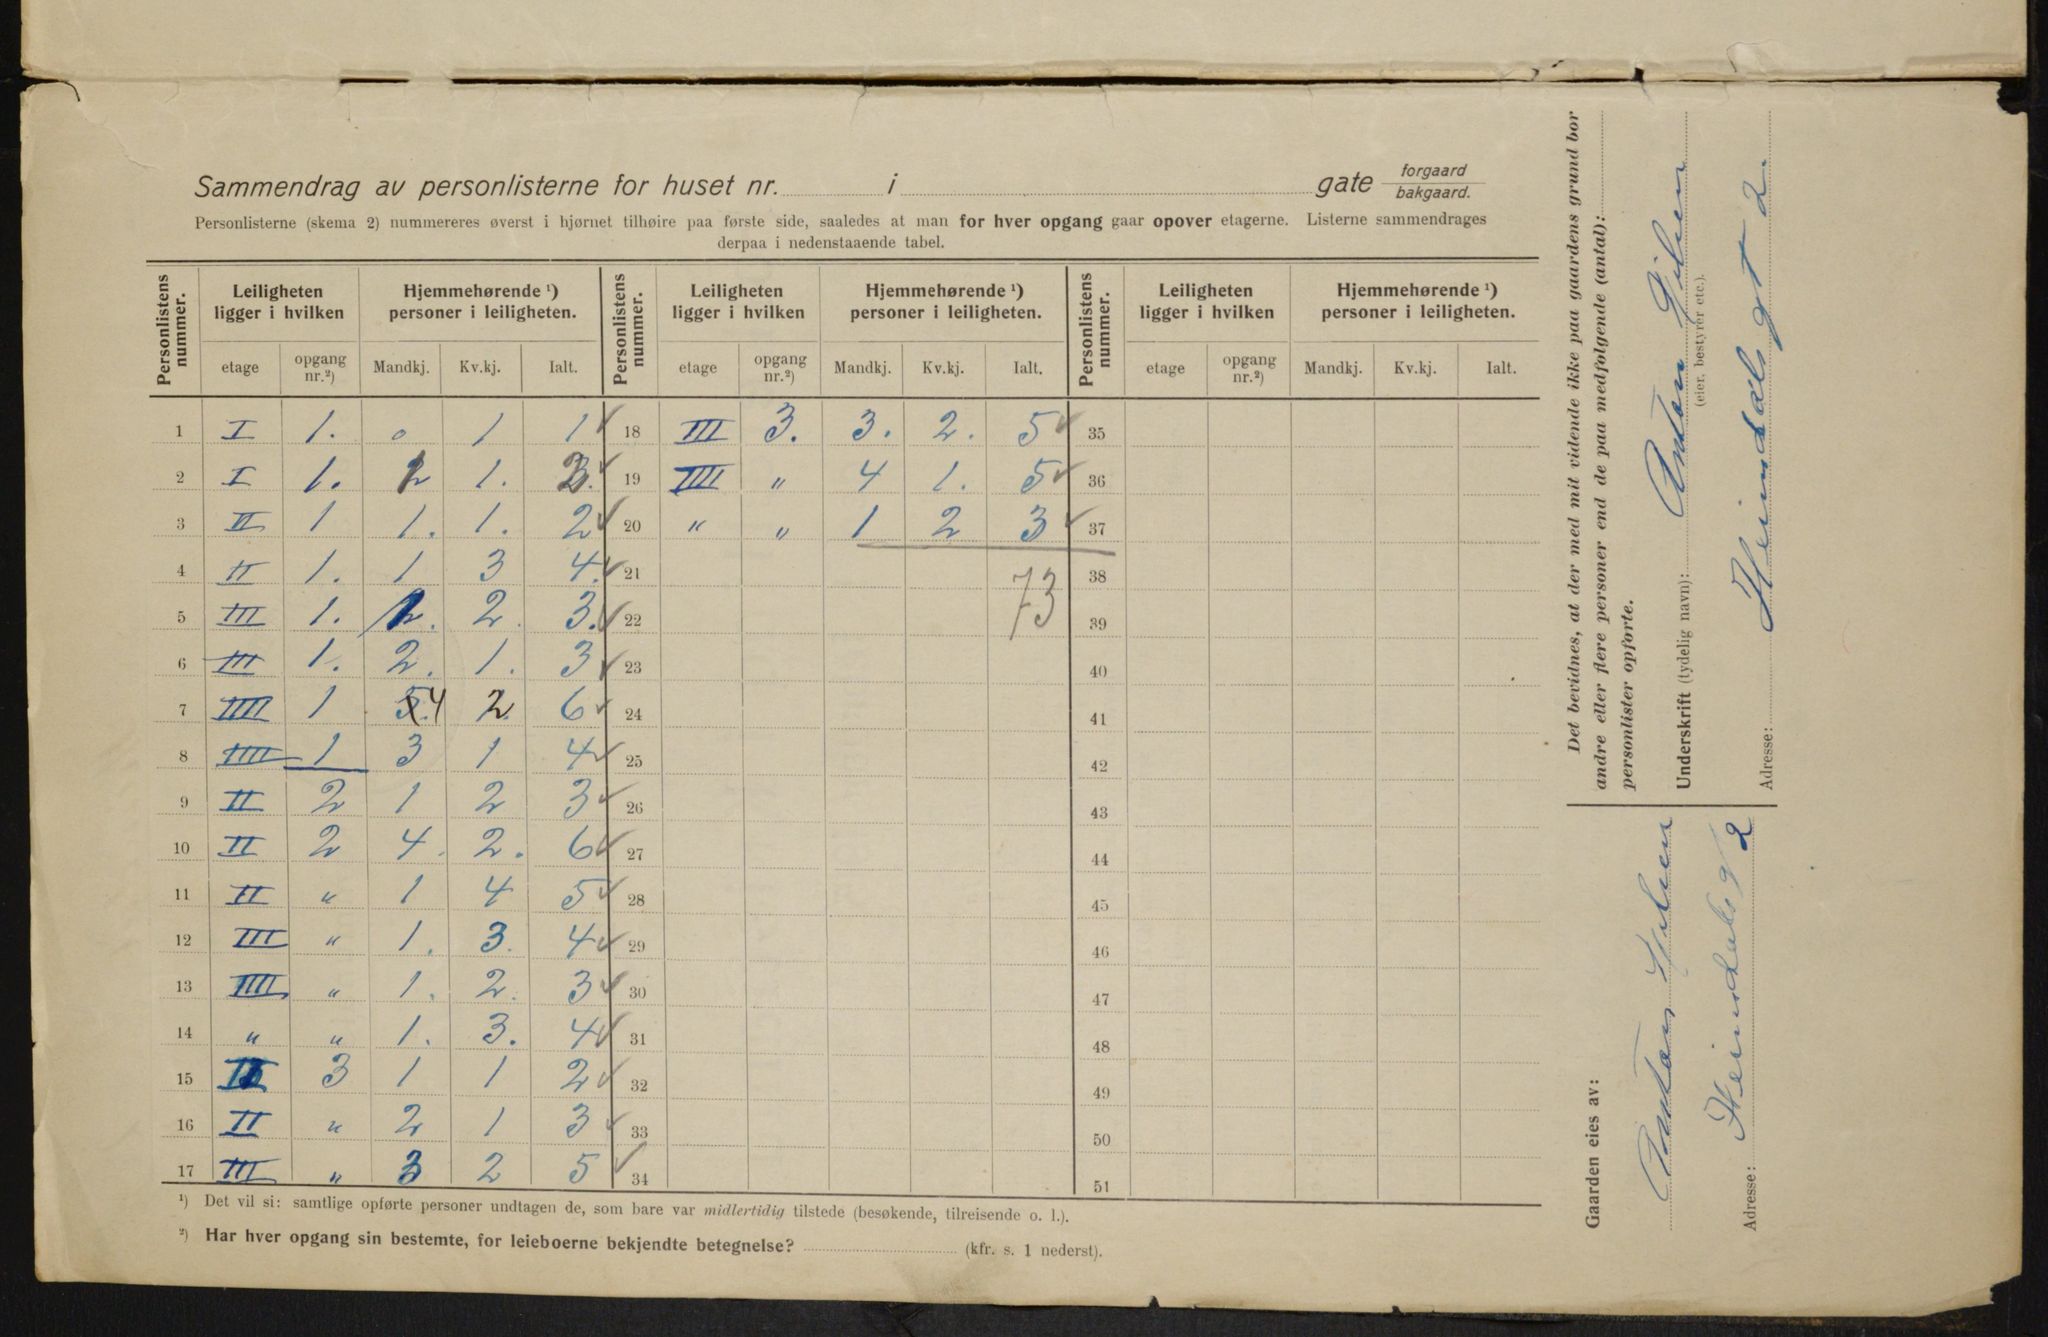 Sammendrag av personlisterne for huset nr. i gate forgaard bakgaard.
Personlisterne (skema 2) nummereres øverst i hjørnet tilhøire paa første side, saaledes at man for hver opgang gaar opover etagerne. Listerne sammendrages
derpaa i nedenstaaende tabel.
Personlistens nummer. Leiligheten ligger i hvilken Hjemmehørende ¹) personer i leiligheten. Personlistens nummer. Leiligheten ligger i hvilken Hjemmehørende ¹) personer i leiligheten. Personlistens nummer. Leiligheten ligger i hvilken Hjemmehørende ¹) personer i leiligheten.
etage opgang nr.²) Mandkj. Kv.kj. Ialt. etage opgang nr.²) Mandkj. Kv.kj. Ialt. etage opgang nr.²) Mandkj. Kv.kj. Ialt.
1 I 1. 0 1 1 18 III 3. 3. 2. 5 35
2 I 1. 2 1. 3. 19 IIII " 4 1. 5 36
3 II 1 1. 1. 2 20 " " 1 2 3 37
4 II 1. 1 3 4. 21 73 38
5 III 1. 2. 3. 22 39
6 III 1. 2. 1. 3 23 40
7 IIII 1 5. 4 2. 6 24 41
8 IIII 1 3 1 4 25 42
9 II 2 1 2 3 26 43
10 II 2 4. 2. 6 27 44
11 II " 1 4 5 28 45
12 III " 1. 3. 4 29 46
13 IIII " 1. 2. 3 30 47
14 " " 1. 3. 4 31 48
15 3 1 1 2 32 49
16 II " 2 1 3 33 50
17 III " 3 2 5 34 51
¹) Det vil si: samtlige opførte personer undtagen de, som bare var midlertidig tilstede (besøkende, tilreisende o. l.).
²) Har hver opgang sin bestemte, for leieboerne bekjendte betegnelse? (kfr. s. 1 nederst).
Det bevidnes, at der med mit vidende ikke paa gaardens grund bor
andre eller flere personer end de paa medfølgende (antal):
personlister opførte.
Underskrift (tydelig navn): Anton
(eier, bestyrer etc.).
Adresse: Heimdalsgt 2.
Gaarden eies av:
Anton
Adresse: Heimdalsgt 2